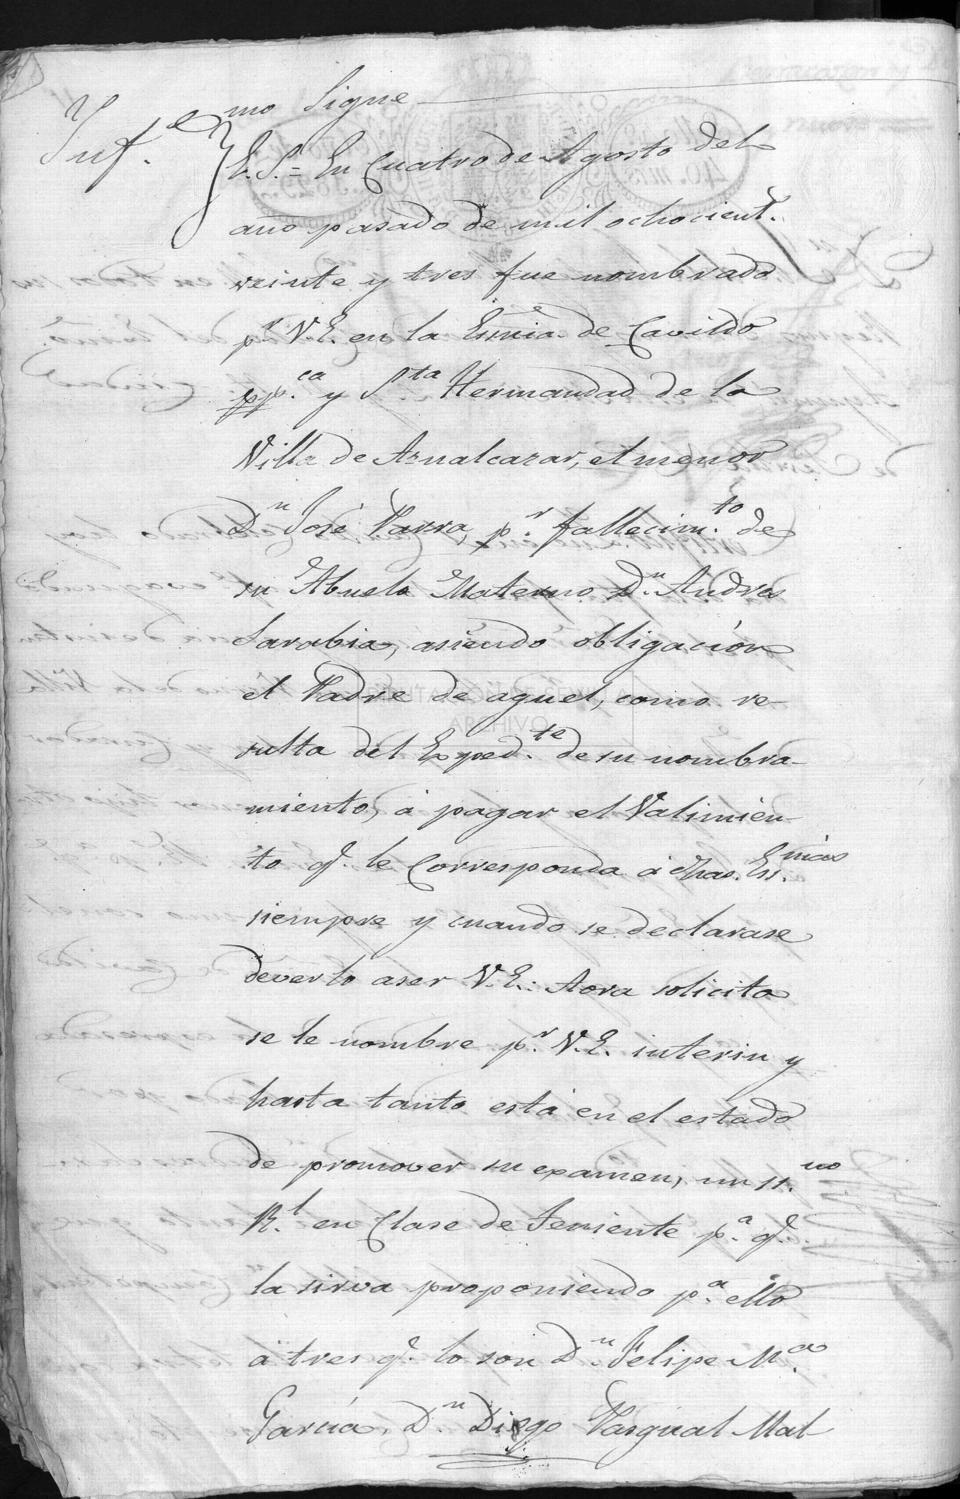 mo sigue
Inf.e
E. S.= En Cuatro de Agosto del
año pasado de mil ochocient.
veinte y tres fue nombrado
pr V.E. en la Essnia. de Cavildo
pp.ca y S.ta Hermandad de la
Villa de Aznalcazar, el menor
Dn José Parra, p.r fallecim.to de
su Abuelo Materno D.n Andres
Sarabia, asiendo obligación
el Padre de aquel, como re-
sulta del Exped.te de su nombra-
miento, á pagar el Valimien-
to q.e le Corresponda á dhas. Ess.nias
siempre y cuando se declarase
deverlo aser V.E.: Aora solicita
se le nombre p.r V.E. interin y
hasta tanto está en el estado
de promover su examen, un ss.no
R.l en Clase de Teniente p.a q.e
la sirva proponiendo p.a ello
á tres q.e lo son D.n Felipe M.a
García, D.n Diego Pasqual Mal
ARCHIVO